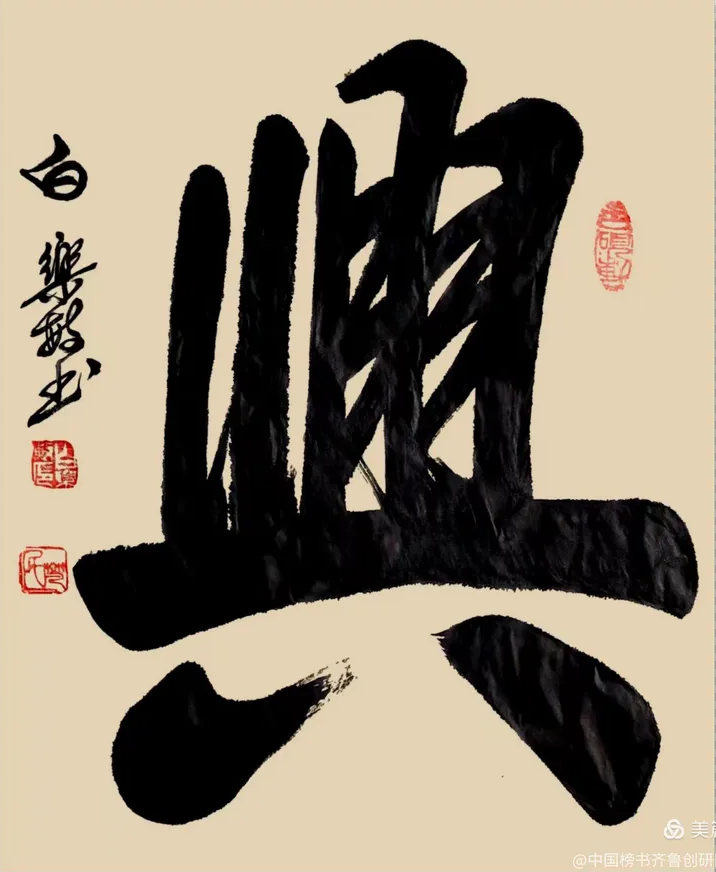 興
白樂敏书
美篇
@中国榜书齐鲁创研